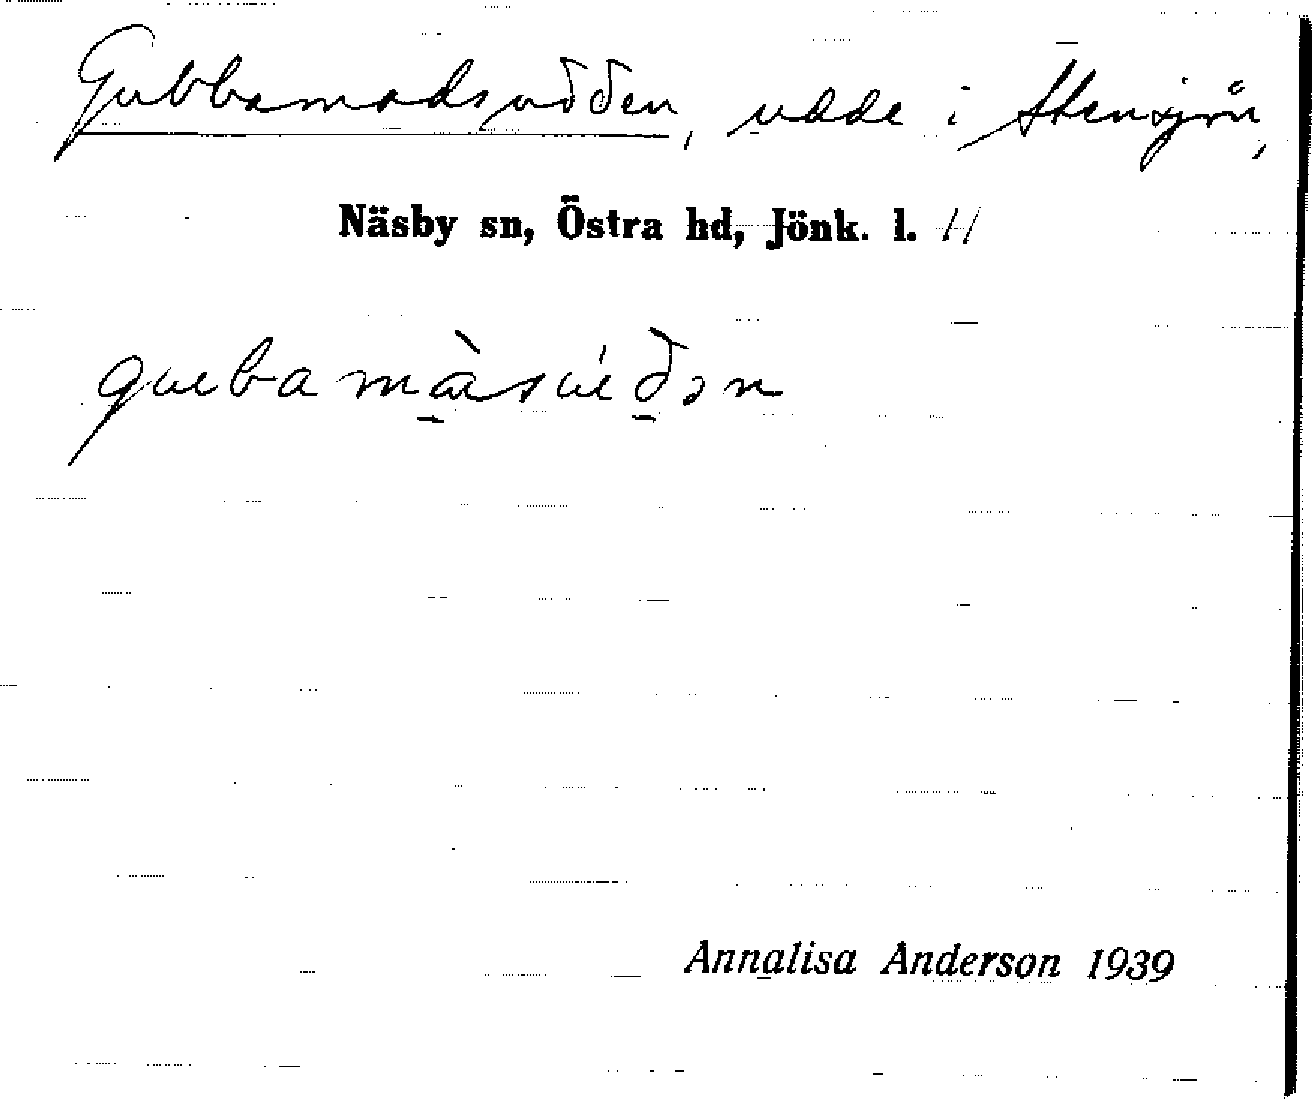 Gubbamadsudden, udde i Stensjön,
Näsby sn, Östra hd, Jönk. l. 11
Annalisa Anderson 1939